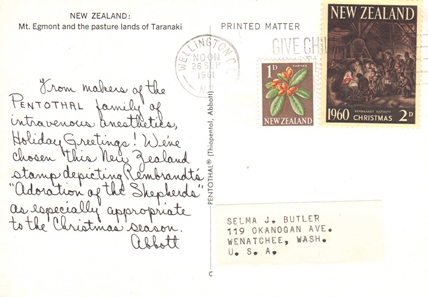 NEW ZEALAND:
Mt. Egmont and the pasture lands of Taranaki
From makers of the
PENTOTHAL family of
intravenous anesthetics,
Holiday Greetings! We've
chosen this New Zealand
stamp depicting Rembrandt's
"Adoration of the Shepherds"
as especially appropriate
to the Christmas season.
Abbott
PENTOTHAL® (Thiopental, Abbott)
C
PRINTED MATTER
WELLINGTON C.
NOON
1961
GIVE CHIL
1D
NEW ZEALAND
NEW ZEALAND
1960 CHRISTMAS 2D
SELMA J. BUTLER
119 OKANOGAN AVE.
WENATCHEE, WASH.
U. S. A.